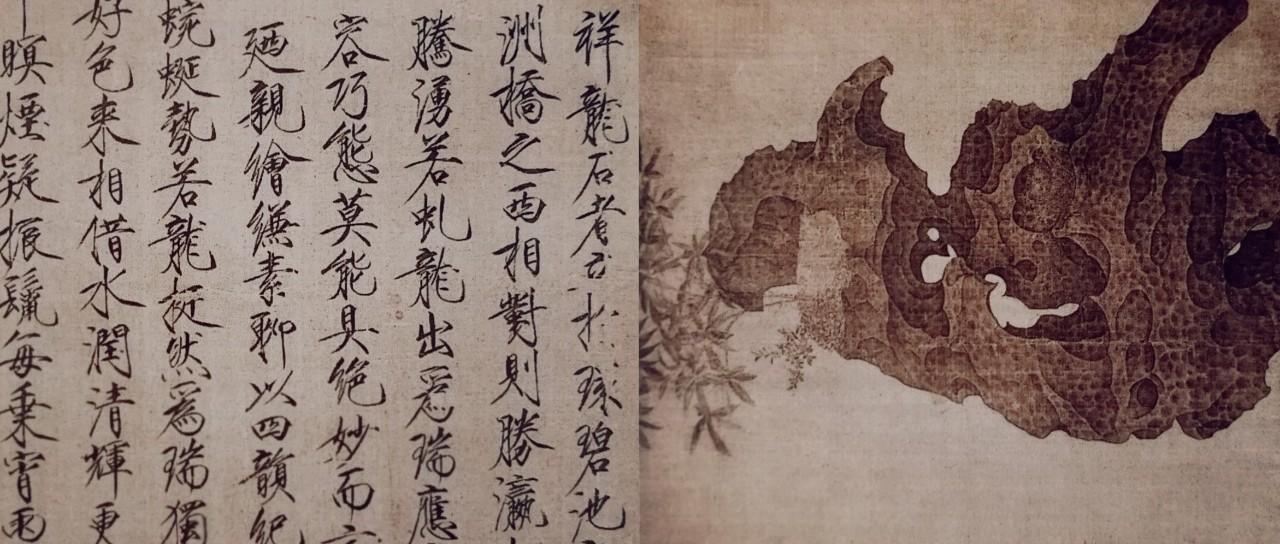 祥龍石者環碧池
洲橋之西相對則勝瀛
騰湧若虬龍出爲瑞應
容巧態莫能具絕妙而
廼親繪縑素聊以四韻紀
蜿蜒勢若龍挺然爲瑞獨
好色來相借水潤清輝更
暝煙疑振鬣每乘宵雨